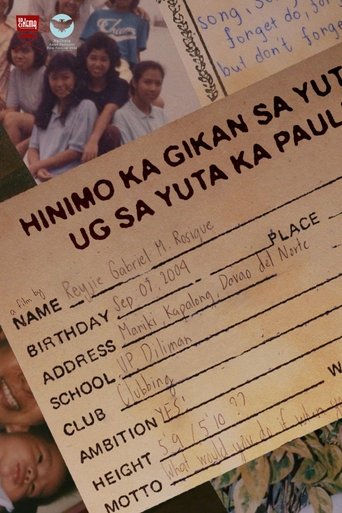 song, so
forget do, for
forget
but don't
HINIMO KA GIKAN SA YUTA
UG SA YUTA KA PAUL
a film by
NAME Reyjie Gabriel M. Rosique
BIRTHDAY Sep 09, 2004 PLACE
ADDRESS Maniki, Kapalong, Davao del Norte
SCHOOL UP Diliman
CLUB Clubbing
AMBITION YES!
HEIGHT 5'9 / 5'10 ??
MOTTO What would you do if when you